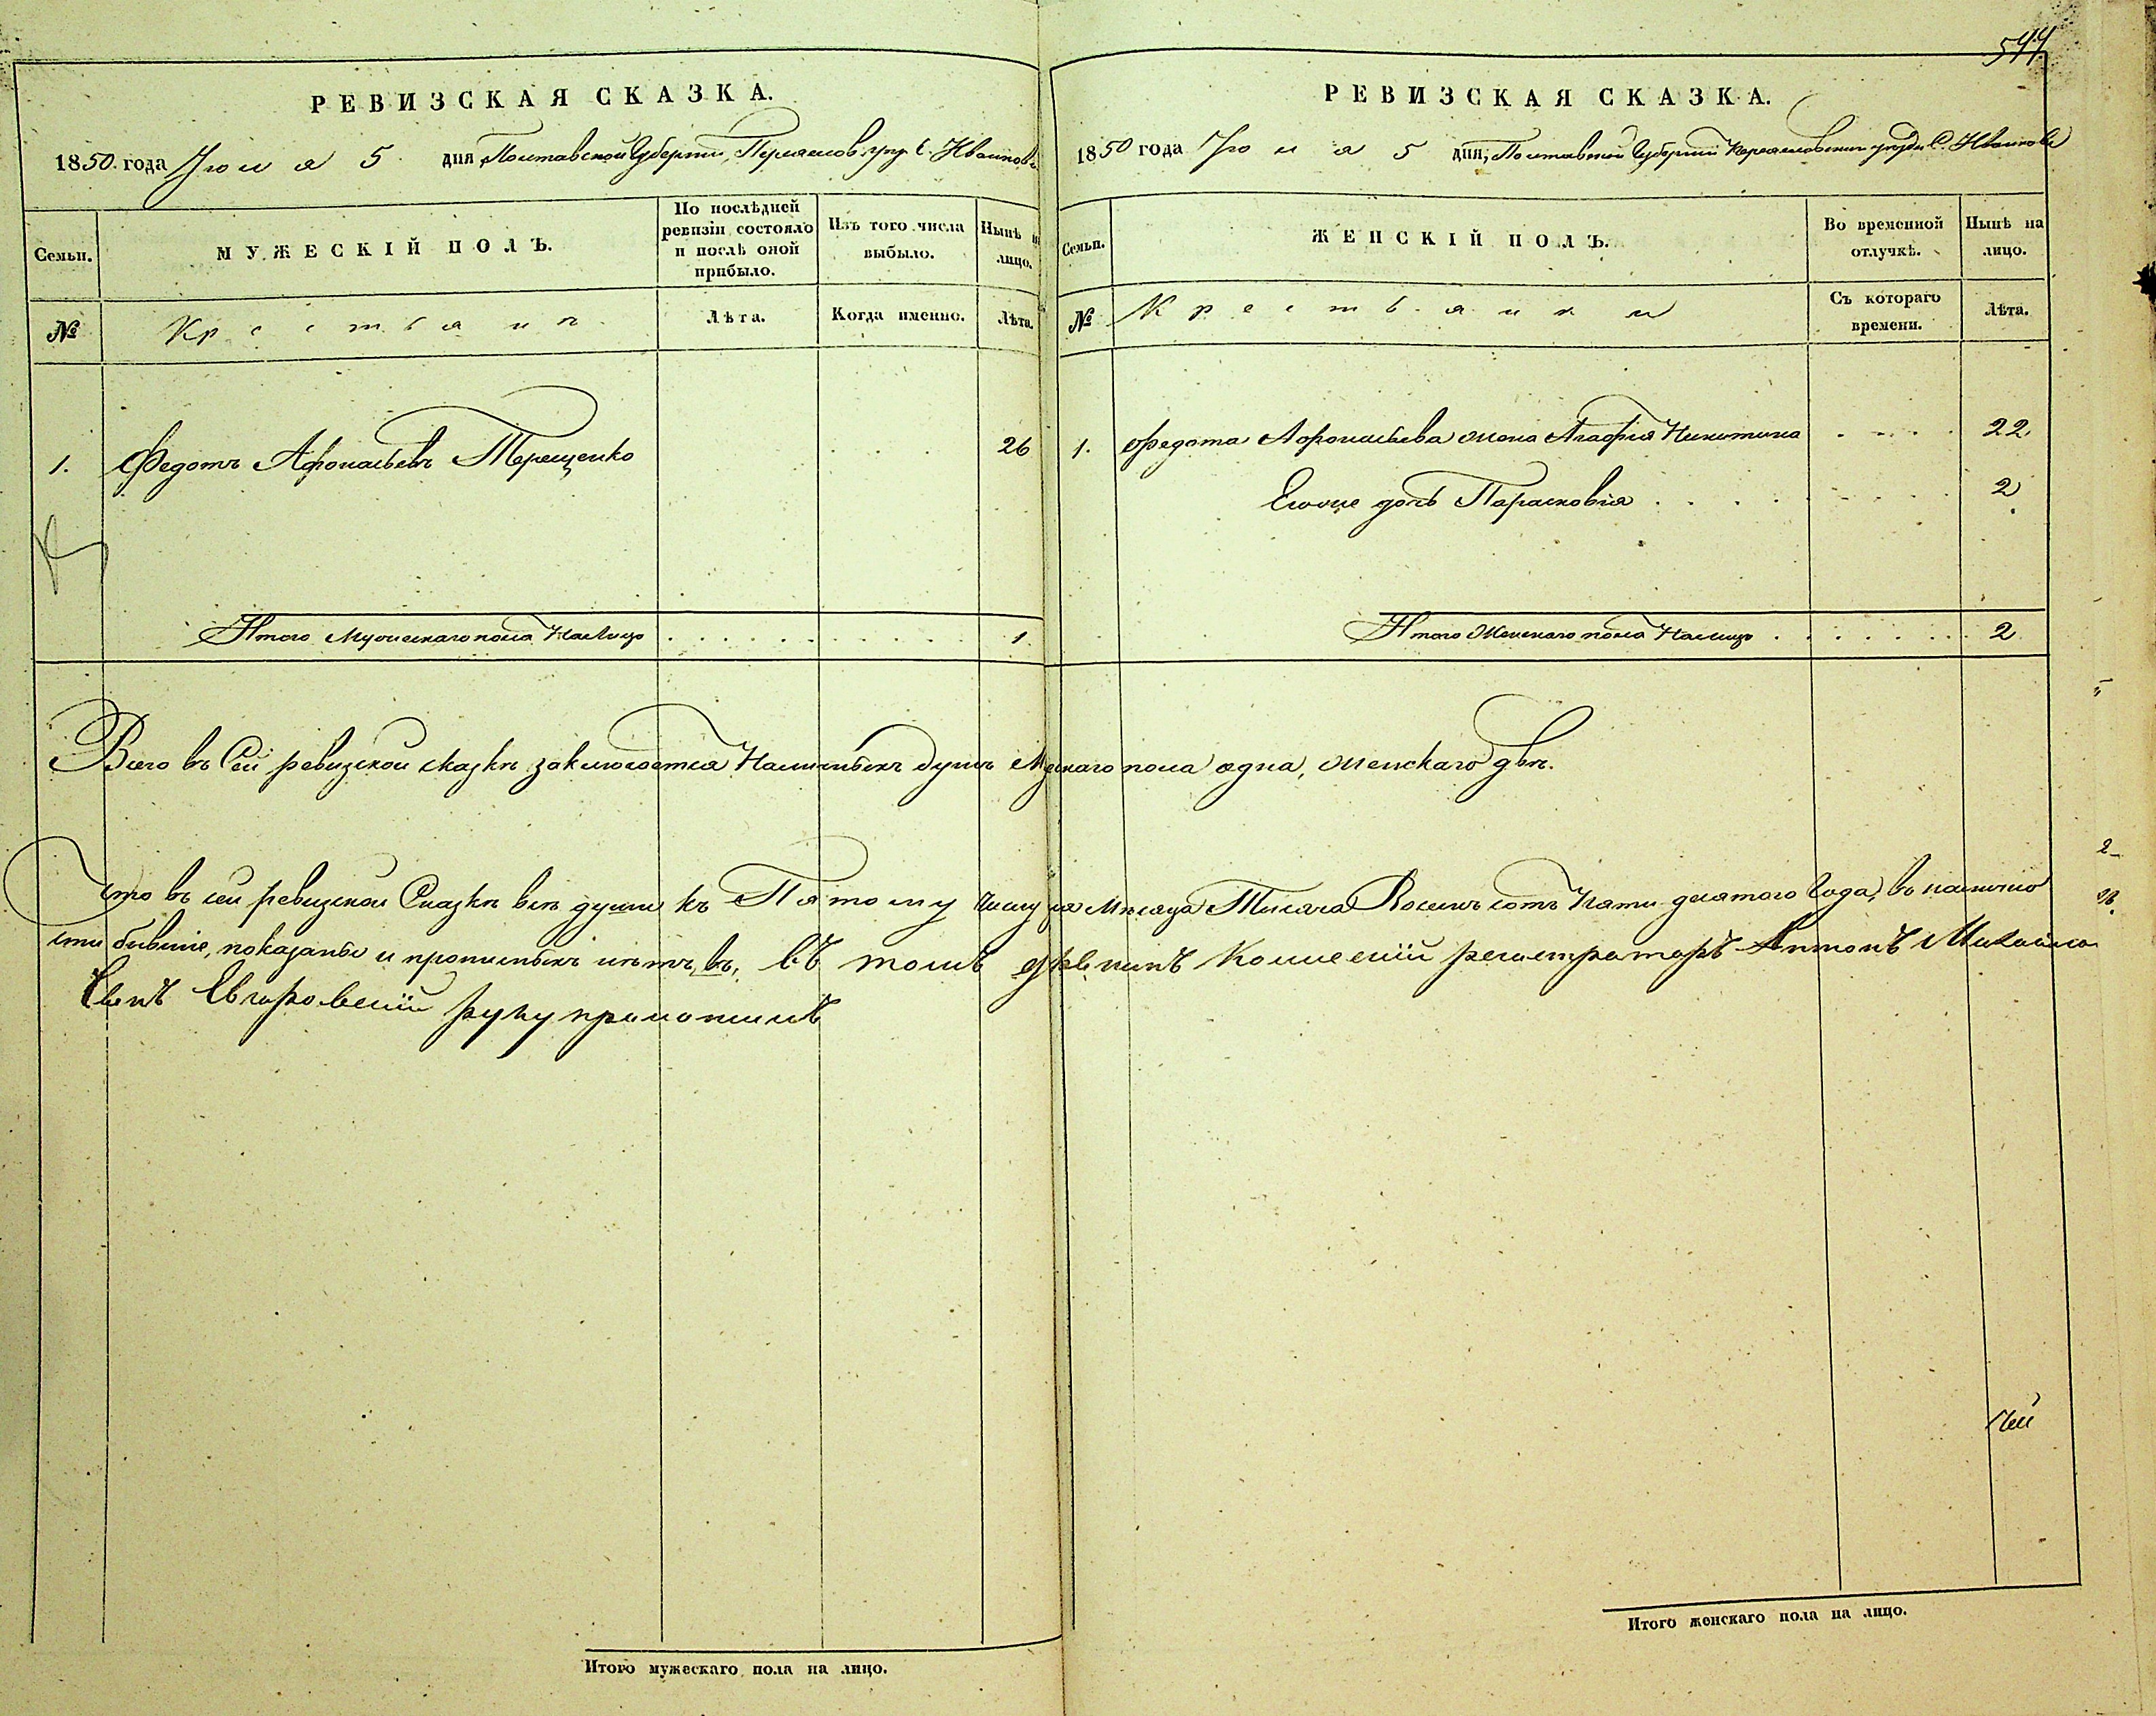 544
РЕВИЗСКАЯ СКАЗКА.
1850 года Июня 5 дня, Полтавской Губерніи, Переяслов. уезд. С. Иванков
Семьи.
МУЖЕСКІЙ ПОЛЪ.
По послѣдней ревизіи состояло и послѣ оной прибыло.
Изъ того числа выбыло.
Нынѣ на лицо.
№
Крестьянъ
Лѣта.
Когда именно.
Лѣта.
1. Федотъ Афонасьевъ Терещенко 26
Итого Мужескаго пола На лицо 1.
РЕВИЗСКАЯ СКАЗКА.
1850 года Июня 5 дня, Полтавской Губерніи Переясловскаго уезда С. Иванкова
Семьи.
ЖЕНСКІЙ ПОЛЪ.
Во временной отлучкѣ.
Нынѣ на лицо.
№
Крестьянки
Съ котораго времени.
Лѣта.
1. Федота Афонасьева жена Агафія Никитина 22
Егоже дочь Парасковія 2
Итого Женскаго пола На лицо 2
Всего въ Сей ревизской сказкѣ заключается Наличныхъ душъ Мужескаго пола одна, женскаго двѣ.
Что въ сей ревизской Сказкѣ всѣ души къ Пятому числу Мѣсяца Тысяча Восемь сотъ Пяти десятого Года, въ налично
сти бывшіе, показаны и прописныхъ нѣтъ, въ томъ Коллежскій регистраторъ Антонъ Михайло
въ руку приложилъ
Итого мужескаго пола на лицо.
Итого женскаго пола на лицо.